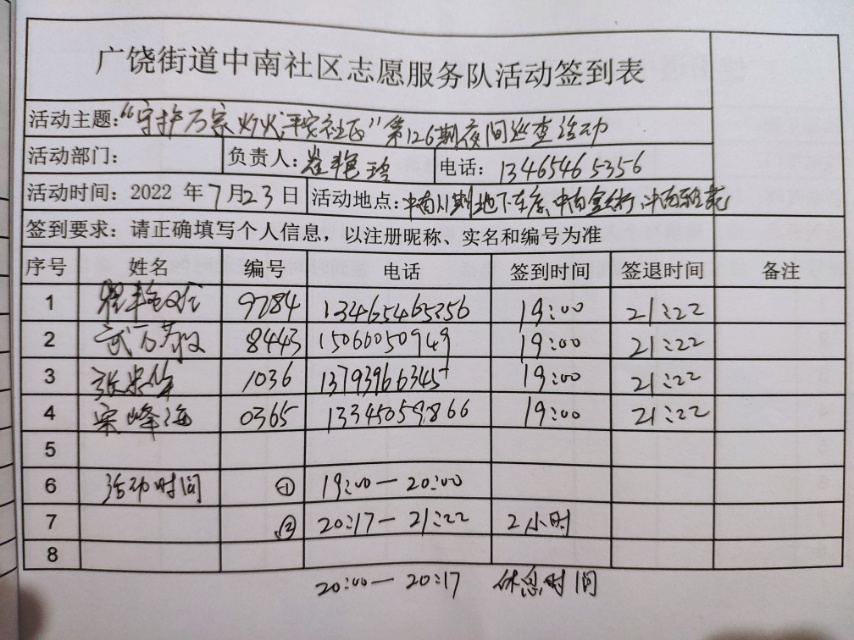 广饶街道中南社区志愿服务队活动签到表
活动主题:“守护万家灯火 平安社区”第126期夜间巡查活动
活动部门: 负责人: 电话: 13465465356
活动时间: 2022 年 7 月 23 日 活动地点: 中南八期地下车库、中南
签到要求: 请正确填写个人信息，以注册昵称、实名和编号为准
序号 姓名 编号 电话 签到时间 签退时间 备注
1 9784 13465465356 19:00 21:22
2 8443 15066050949 19:00 21:22
3 1036 13793966345 19:00 21:22
4 宋峰海 0365 13345059866 19:00 21:22
5
6 活动时间 ① 19:00—20:00
7 ② 20:17—21:22 2小时
8
20:00—20:17 休息时间